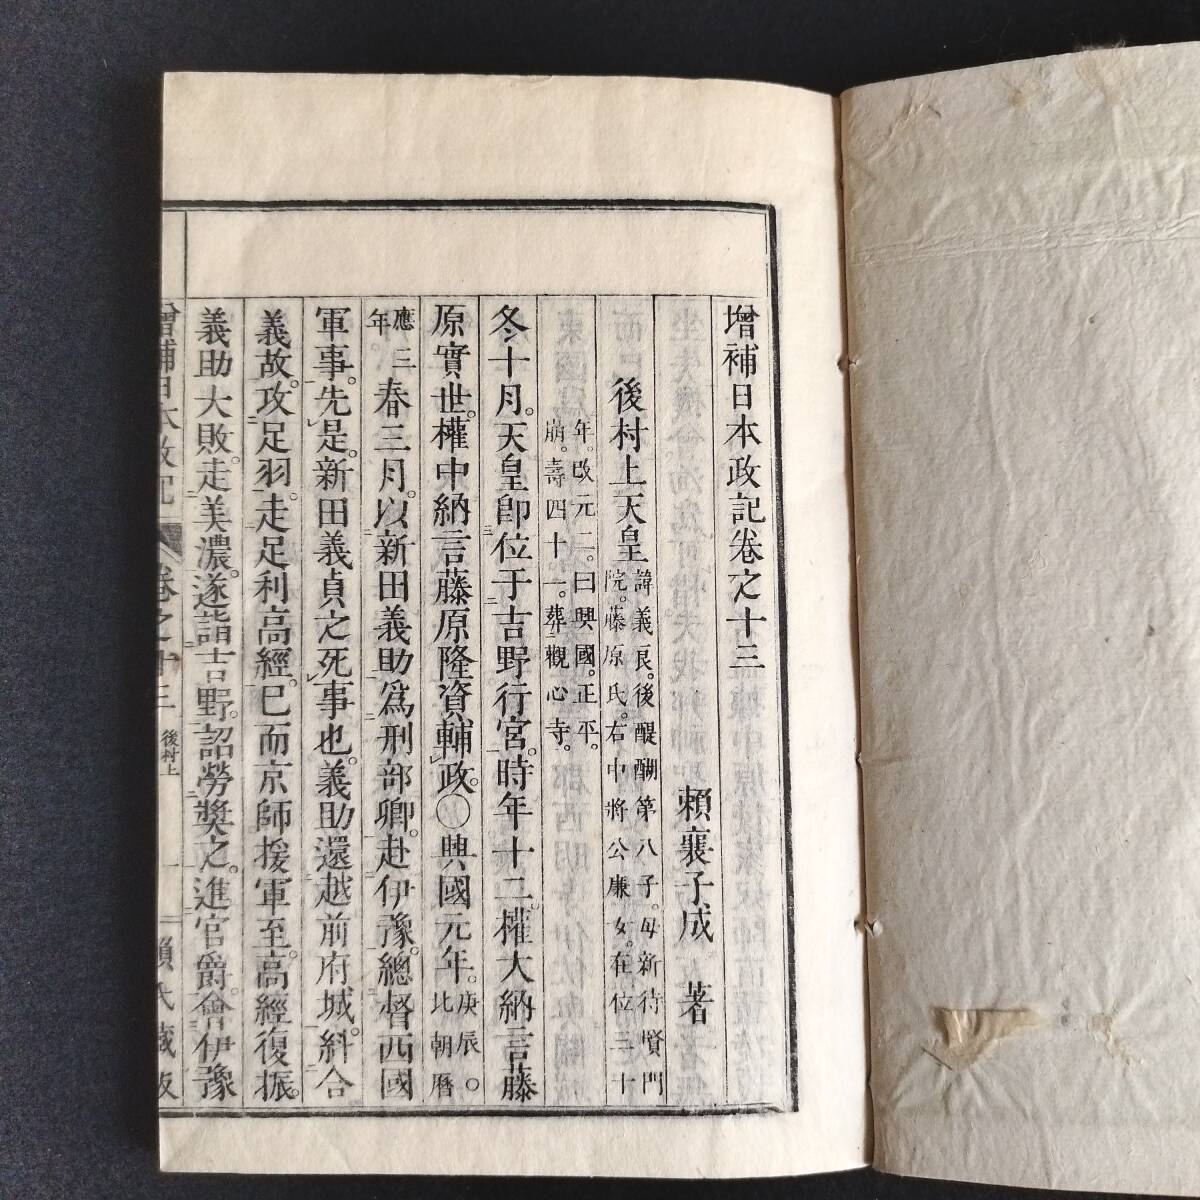 增補日本政記卷之十三
賴襄子成 著
後村上天皇
諱義良。後醍醐第八子。母新待賢門
院。藤原氏。右中將公廉女。在位三十
年。改元二。曰興國。正平。
崩。壽四十一。葬觀心寺。
冬十月。天皇卽位于吉野行宮。時年十二。權大納言藤
原實世。權中納言藤原隆資輔政。○興國元年。庚辰。北朝曆
應三年 春三月。以新田義助爲刑部卿。赴伊豫。總督西國
軍事。先是。新田義貞之死事也。義助還越前府城。糾合
義故。攻足羽。走足利高經。已而京師援軍至。高經復振。
義助大敗。走美濃。遂詣吉野。詔勞奬之。進官爵。會伊豫
增補日本政記 卷之十三 後村上 一 賴氏藏版